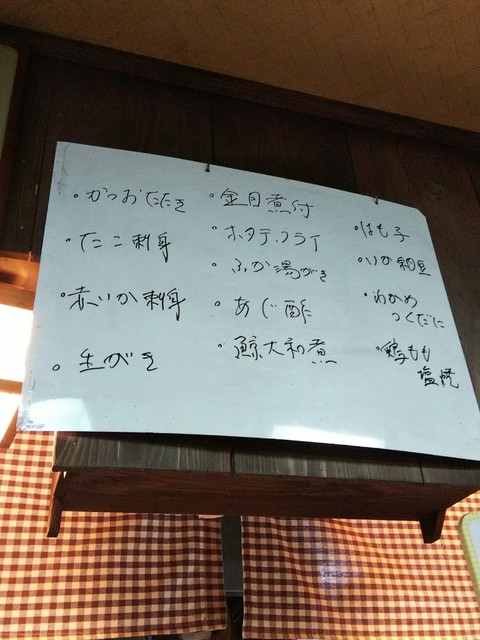 ・かつおたたき
・たこ刺身
・赤いか刺身
・生がき
・金目煮付
・ホタテフライ
・ふか湯がき
・あじ酢
・鯨大和煮
・はも子
・いか納豆
・わかめ
つくだに
・鶏もも
塩焼